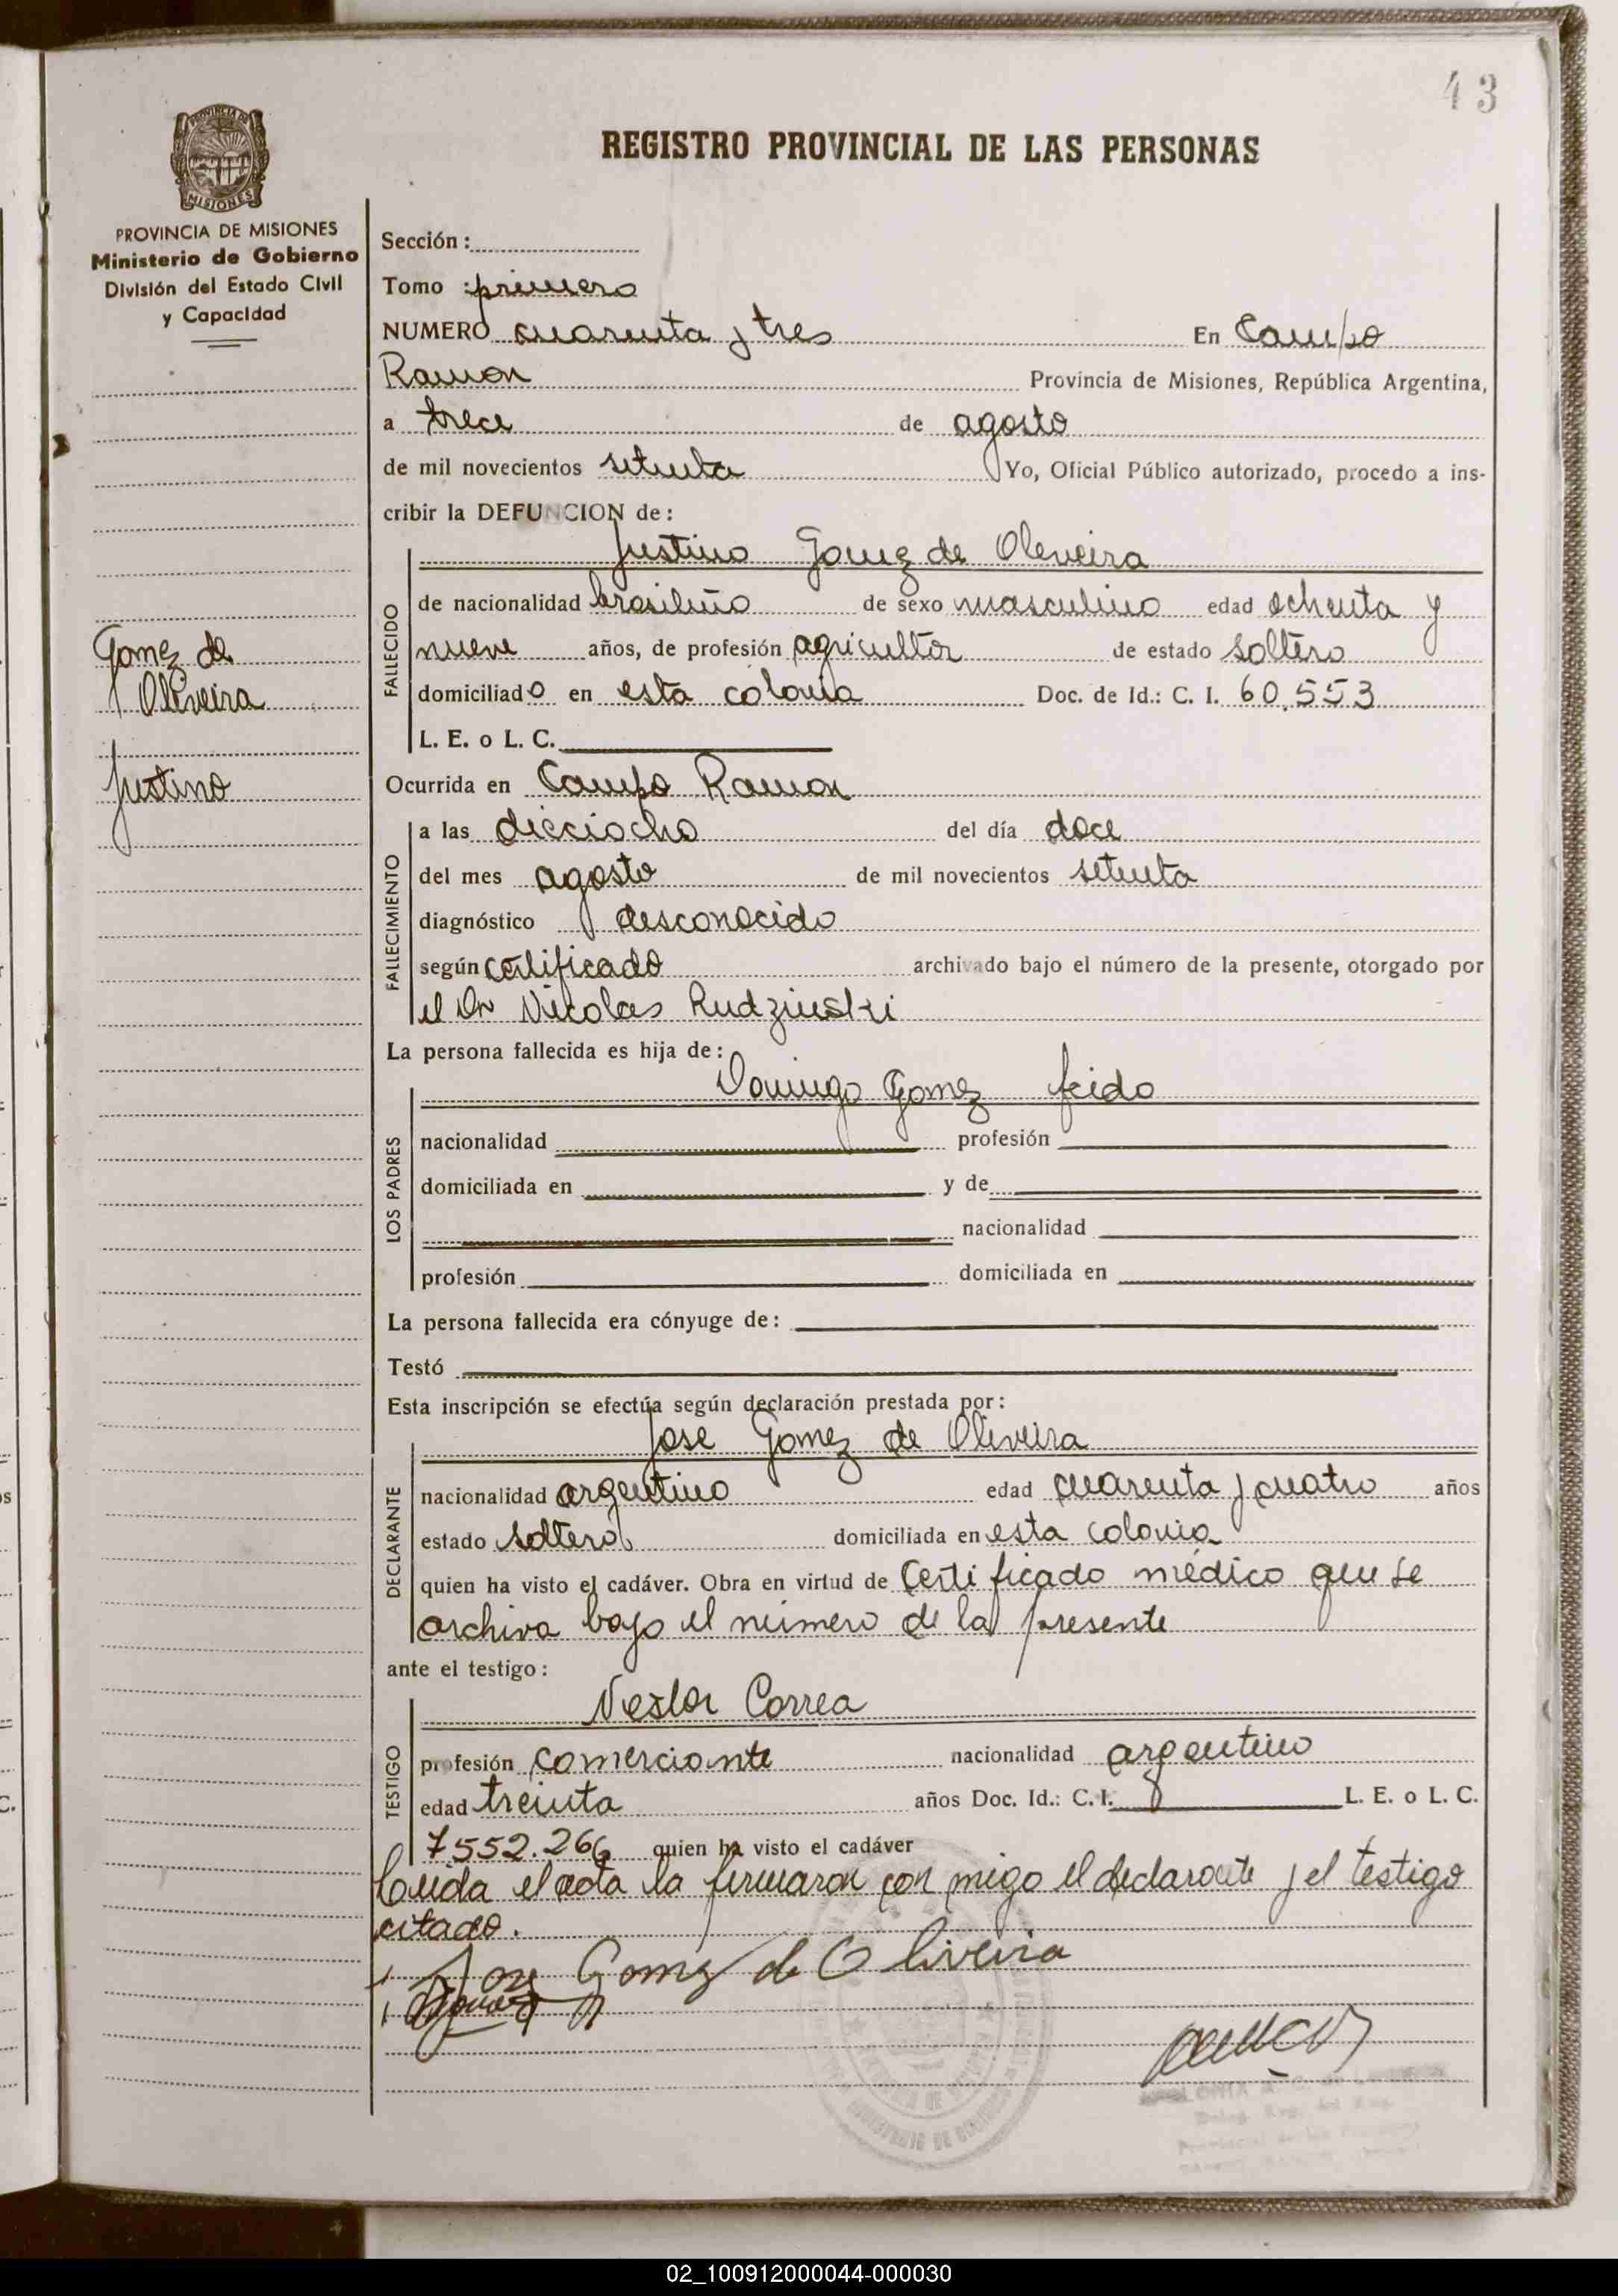 43
PROVINCIA DE
MISIONES
REGISTRO PROVINCIAL DE LAS PERSONAS
PROVINCIA DE MISIONES
Ministerio de Gobierno
División del Estado Civil
y Capacidad
Gomez de
Oliveira
Justino
Sección :
Tomo : primero
NUMERO cuarenta y tres En Campo
Ramon Provincia de Misiones, República Argentina,
a trece de agosto
de mil novecientos setenta Yo, Oficial Público autorizado, procedo a ins-
cribir la DEFUNCION de :
Justino Gomez de Oleveira
FALLECIDO
de nacionalidad brasileño de sexo masculino edad ochenta y
nueve años, de profesión agricultor de estado soltero
domiciliado en esta colonia Doc. de Id.: C. I. 60.553
L. E. o L. C.
Ocurrida en Campo Ramon
FALLECIMIENTO
a las dieciocho del día doce
del mes agosto de mil novecientos setenta
diagnóstico desconocido
según certificado archivado bajo el número de la presente, otorgado por
el Dr Nicolas Rudzinski
La persona fallecida es hija de :
Domingo Gomez fcido
LOS PADRES
nacionalidad profesión
domiciliada en y de
nacionalidad
profesión domiciliada en
La persona fallecida era cónyuge de :
Testó
Esta inscripción se efectúa según declaración prestada por :
Jose Gomez de Oliveira
DECLARANTE
nacionalidad argentino edad cuarenta y cuatro años
estado soltero domiciliada en esta colonia
quien ha visto el cadáver. Obra en virtud de Certificado médico que se
archiva bajo el número de la presente
ante el testigo :
Nestor Correa
TESTIGO
profesión comerciante nacionalidad argentino
edad treinta años Doc. Id.: C. I. L. E. o L. C.
7552.266 quien ha visto el cadáver
Leida el acta la firmaron con migo el declarante y el testigo
citado.
Jose Gomez de Oliveira
02_100912000044-000030